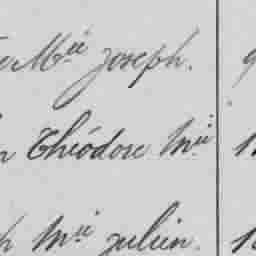 Mie Joseph.
Théodore Mie
h Mie Julien.